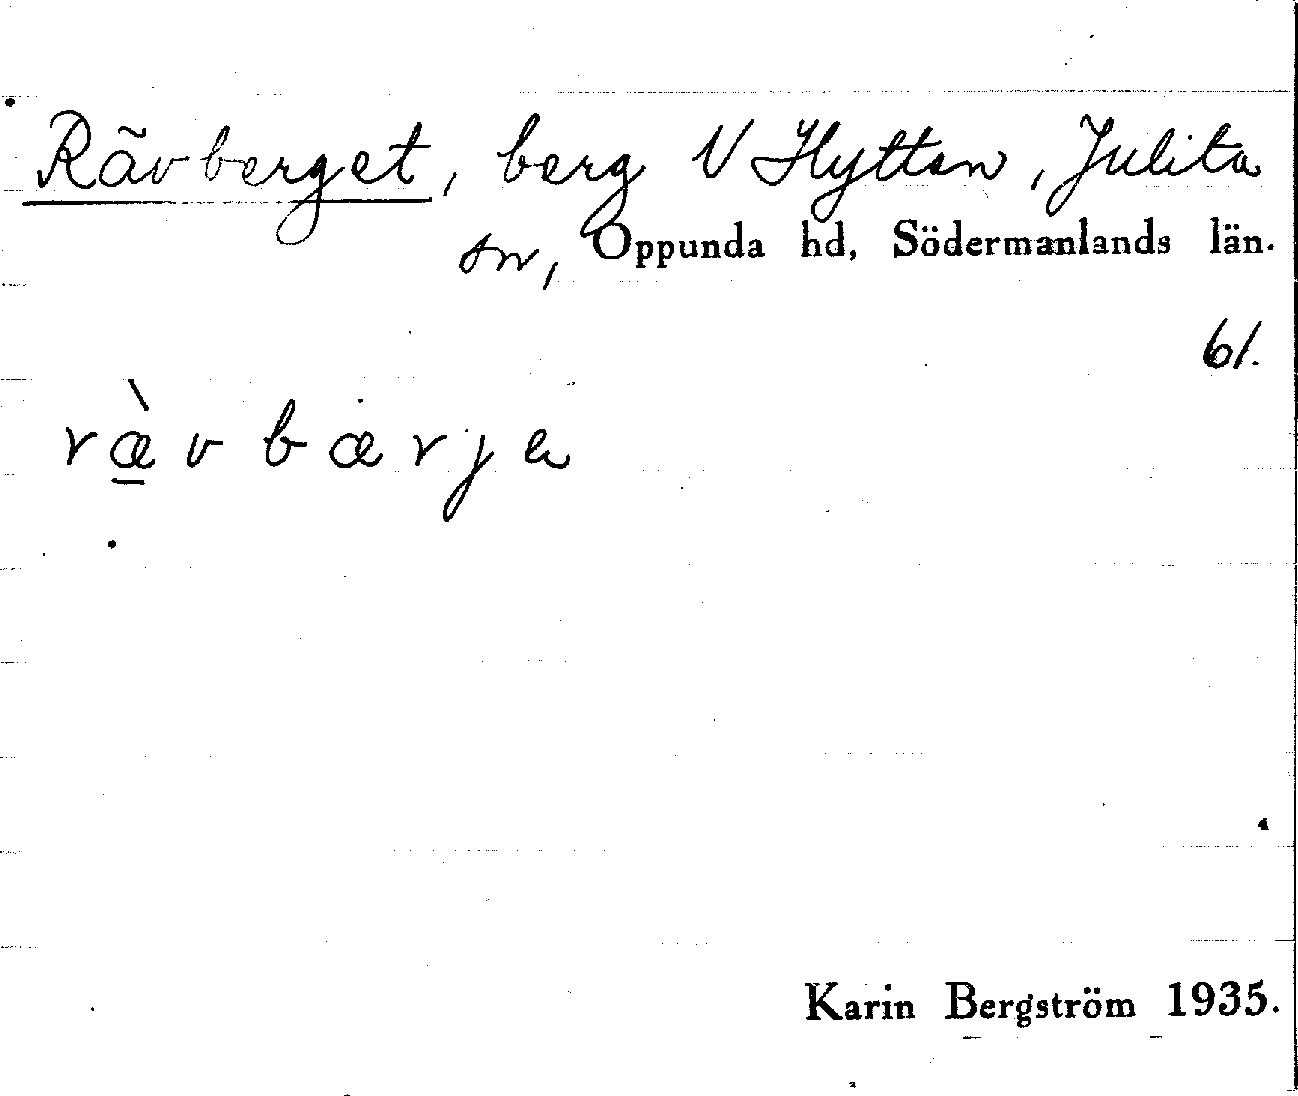 Rävberget, berg V Hyttan, Julita
sn, Oppunda hd, Södermanlands län.
61.
ræ̠̀vbærja
Karin Bergström 1935.